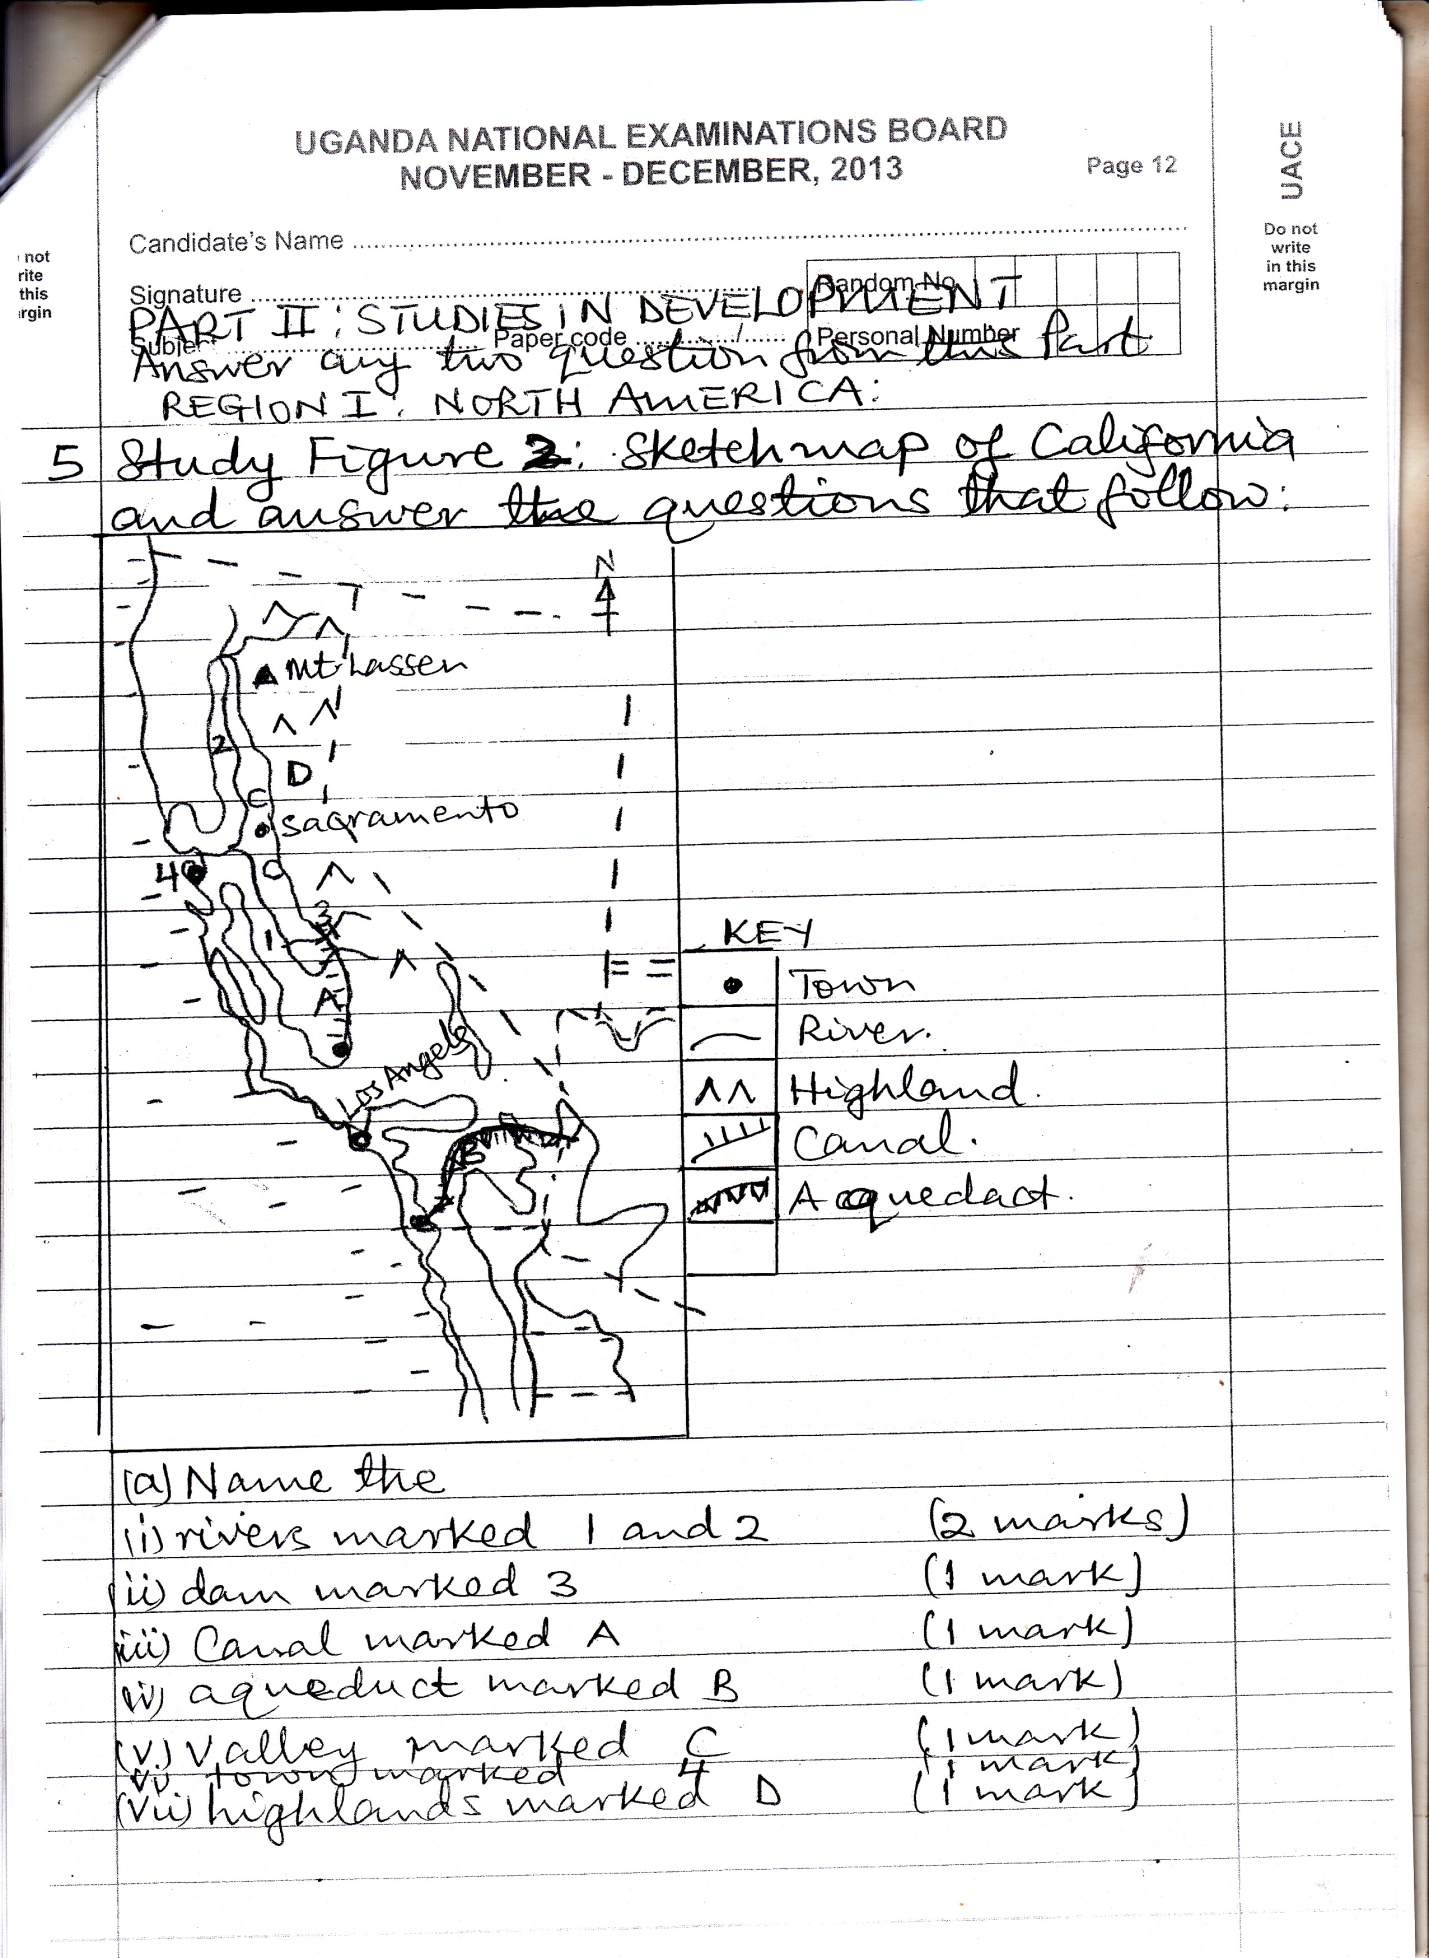 UGANDA NATIONAL EXAMINATIONS BOARD
NOVEMBER - DECEMBER, 2013
Page 12
UACE
Do not
write
in this
margin
not
rite
this
rgin
Candidate's Name
Signature
Random No
PART II: STUDIES IN DEVELOPMENT
Subject
Paper code ........./......
Personal Number
Answer any two question from this Part
REGION I: NORTH AMERICA:
5 Study Figure 2: Sketchmap of California
and answer the questions that follow:
N
Mt. Lassen
2
D
C
Sacramento
4
C
3
1
A
Los Angels
B
KEY
Town
River.
Highland.
Canal.
Aquedact.
(a) Name the
(i) rivers marked 1 and 2 (2 marks)
(ii) dam marked 3 (1 mark)
(iii) Canal marked A (1 mark)
(iv) aqueduct marked B (1 mark)
(v) Valley marked C (1 mark)
vi town marked 4 (1 mark)
(vii) highlands marked D (1 mark)